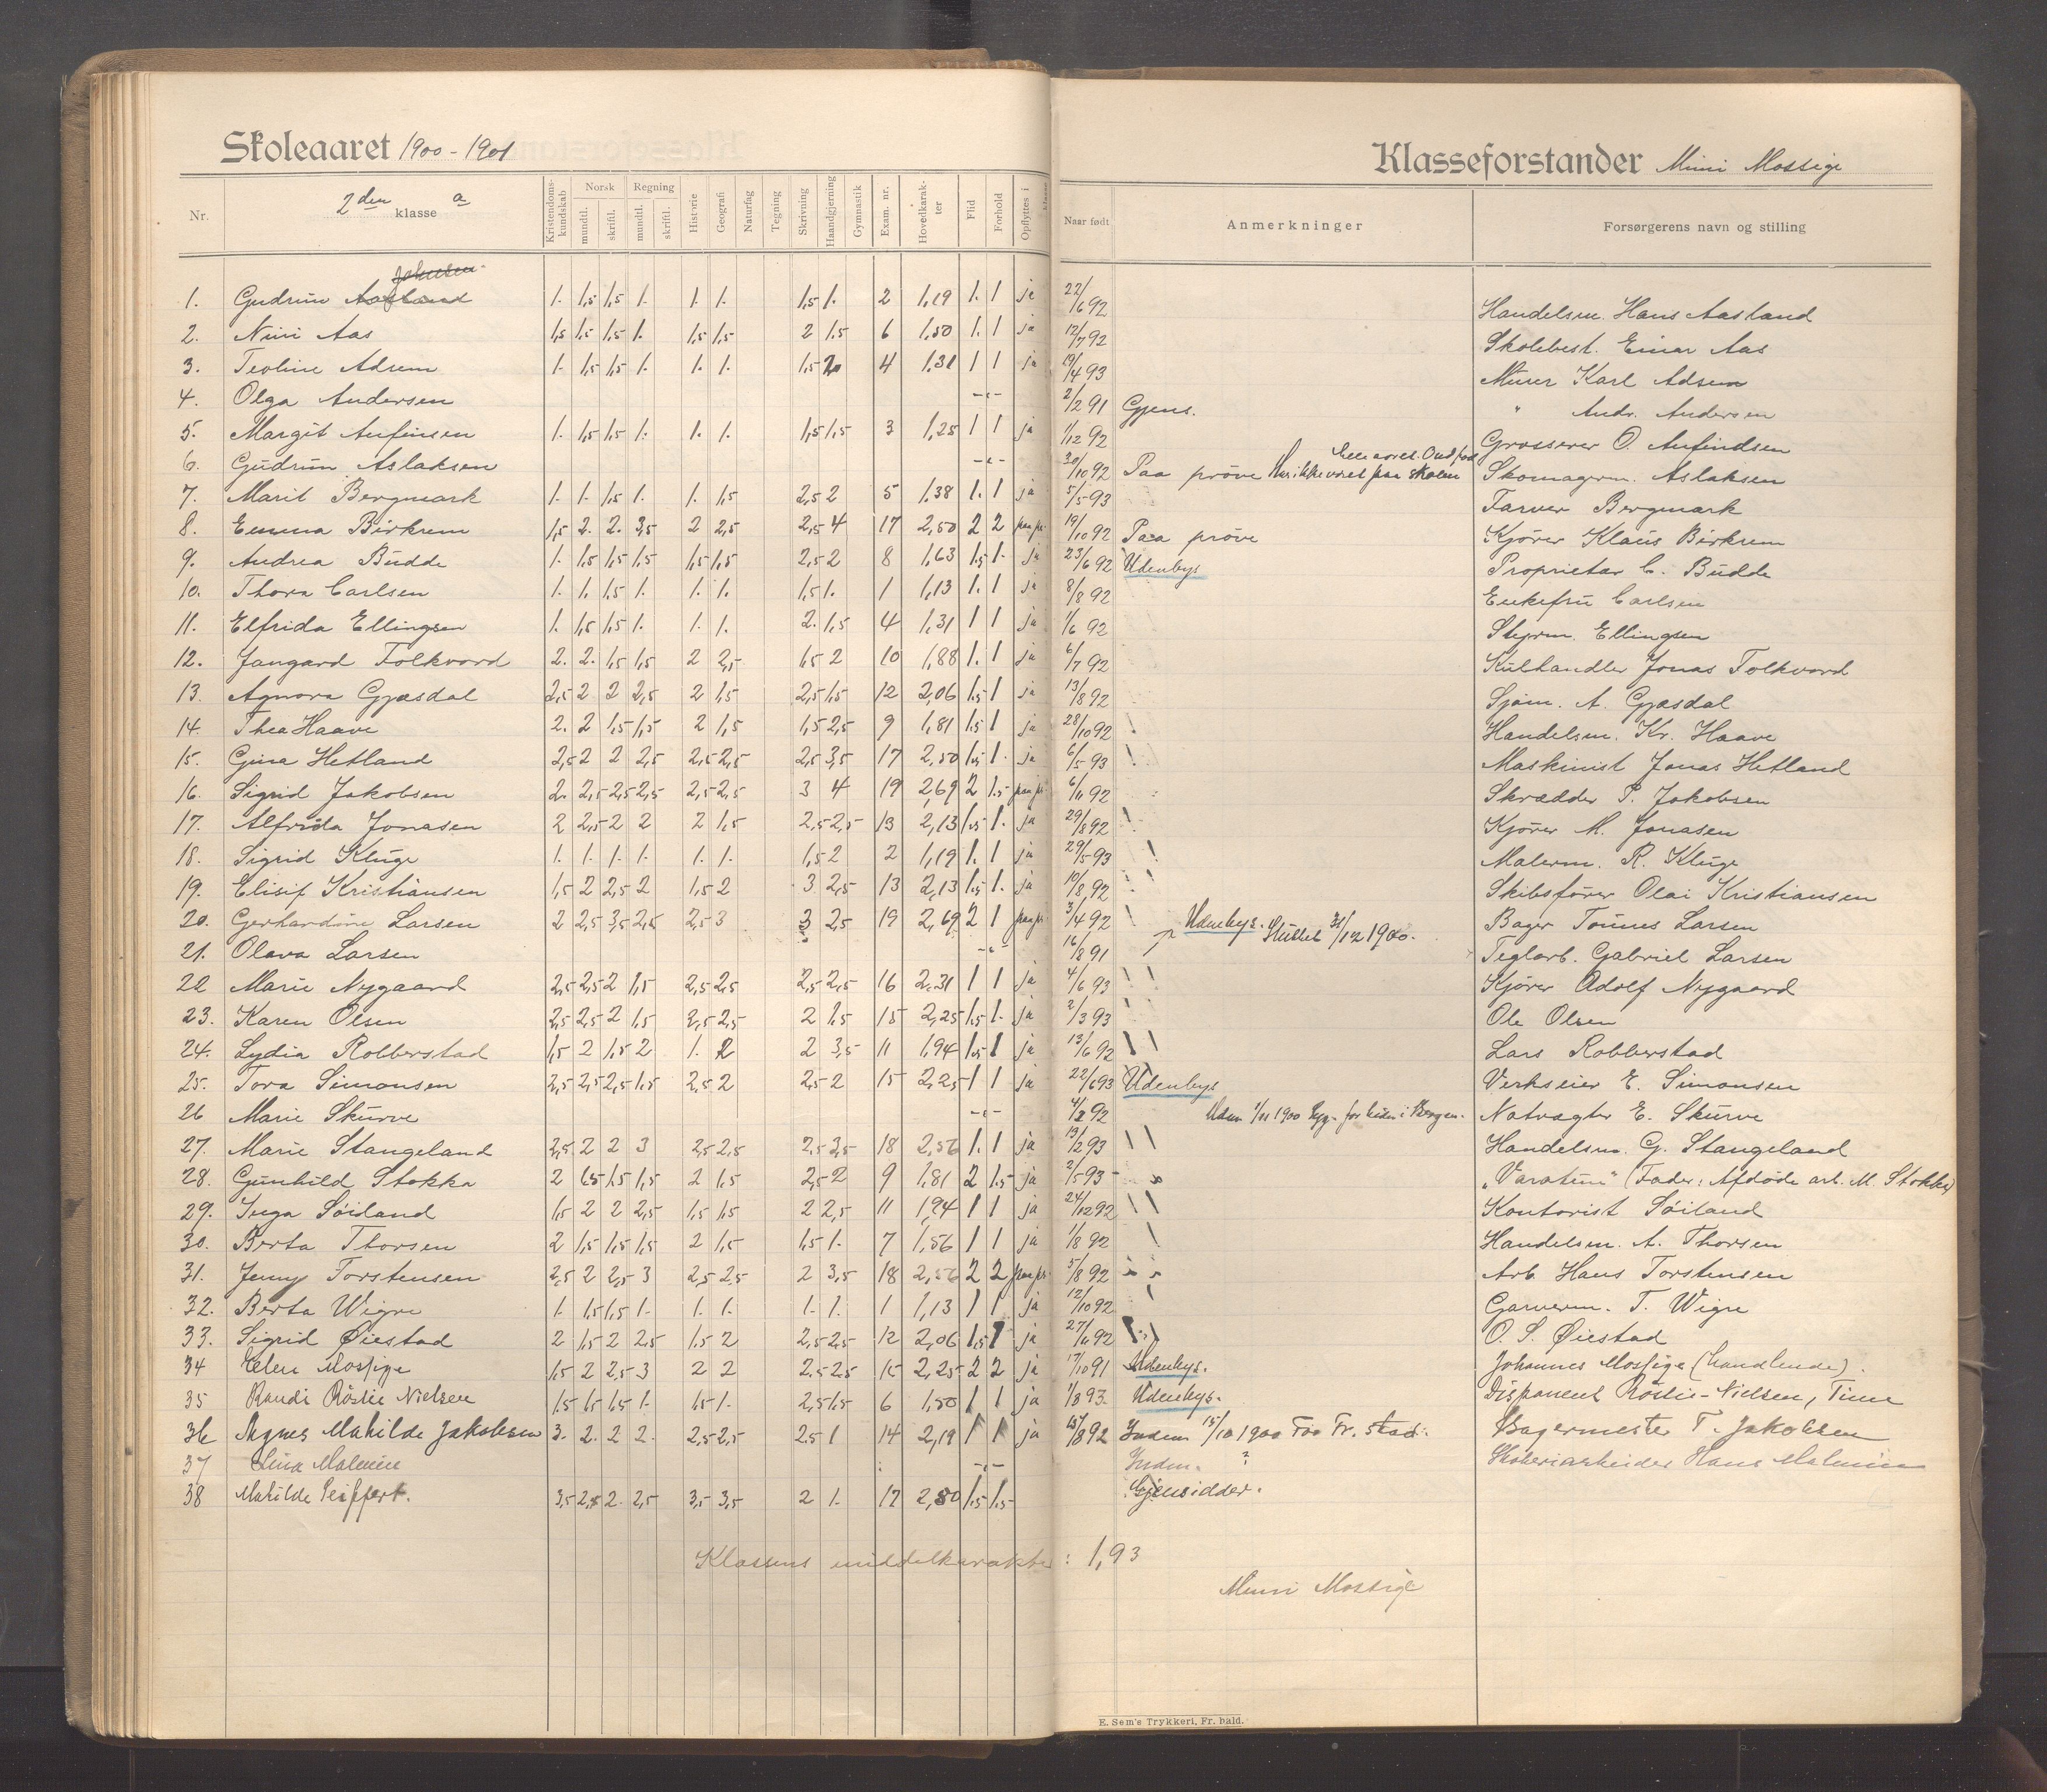 Skoleaaret 1900-1901
Klasseforstander Mimi Mossige
Nr. 2den klasse a Kristendomskundskab Norsk mundtl. skriftl. Regning mundtl. skriftl. Historie Geografi Naturfag Tegning Skrivning Haandgjerning Gymnastik Exam. nr. Hovedkarakter Flid Forhold Opflyttes i Naar født Anmerkninger Forsørgerens navn og stilling
1. Gudrun Aasland 1. 1,5 1,5 1. 1. 1. 1,5 1. 2 1,19 1. 1 ja 22/6 92 Handelsm. Hans Aasland
2. Nini Aas 1,5 1,5 1,5 1. 1,5 1,5 2 1,5 6 1,50 1. 1 ja 12/7 92 Skolebest. Einar Aas
3. Teoline Adsem 1. 1,5 1,5 1. 1. 1. 1,5 2 4 1,31 1 1 ja 19/4 93 Murer Karl Adsem
4. Olga Andersen -"- 2/2 91 Gjens. " Andr. Andersen
5. Margit Anfinsen 1. 1,5 1,5 1. 1. 1. 1,5 1,5 3 1,25 1 1 ja 1/12 92 Grosserer O. Anfindsen
6. Gudrun Aslaksen -"- 30/10 92 Paa prøve Har ikke været paa skolen Skomagerm. Aslaksen
7. Marit Bergmark 1. 1. 1,5 1. 1. 1,5 2,5 2 5 1,38 1. 1 ja 5/5 93 Farver Bergmark
8. Emma Birkrem 1,5 2. 2. 3,5 2 2,5 2,5 4 17 2,50 2 2 paa pr. 19/10 92 Paa prøve Kjører Klaus Birkrem
9. Andrea Budde 1. 1,5 1,5 1,5 1,5 1,5 2,5 2 8 1,63 1,5 1. ja 23/6 92 Udenbys Proprietær C. Budde
10. Thora Carlsen 1. 1. 1,5 1. 1. 1. 1,5 1. 1 1,13 1. 1 ja 8/8 92 Enkefru Carlsen
11. Elfrida Ellingsen 1. 1,5 1,5 1. 1. 1. 2. 1,5 4 1,31 1 1 ja 1/6 92 Styrm. Ellingsen
12. Jangard Folkvord 2. 2. 1,5 1,5 2 2,5 1,5 2 10 1,88 1. 1 ja 6/7 92 Kulhandler Jonas Folkvord
13. Agnora Gjæsdal 2,5 2 2 2,5 2 1,5 2,5 1,5 12 2,06 1,5 1 ja 13/8 92 Sjøm. A. Gjæsdal
14. Thea Haave 2. 2 1,5 1,5 2 1,5 1,5 2,5 9 1,81 1,5 1 ja 28/10 92 Handelsm. Kr. Haave
15. Gina Hetland 2,5 2 2 2,5 2,5 2,5 2,5 3,5 17 2,50 1,5 1. ja 6/5 93 Maskinist Jonas Hetland
16. Sigrid Jakobsen 2. 2,5 2,5 2,5 2,5 2,5 3 4 19 2,69 2 1.5 paa pr. 6/11 92 Skrædder P. Jakobsen
17. Alfrida Jonasen 2 2,5 2 2 2 1,5 2,5 2,5 13 2,13 1,5 1. ja 29/8 92 Kjører M. Jonasen
18. Sigrid Kluge 1. 1. 1. 1. 1. 1. 1,5 2 2 1,19 1. 1 ja 29/5 93 Malerm. R. Kluge
19. Elisif Kristiansen 1,5 2 2,5 2 1,5 2 3 2,5 13 2,13 1,5 1. ja 10/8 92 Skibsfører Olai Kristiansen
20. Gerhardine Larsen 2 2,5 3,5 2,5 2,5 3 3 2,5 19 2,69 2 1 paa pr. 3/4 92 Udenbys. Bager Tønnes Larsen
21. Olava Larsen -"- 16/8 91 Sluttet 31/12 1900. Teglarb. Gabriel Larsen
22 Marie Nygaard 2,5 2,5 2 1,5 2,5 2,5 2,5 2,5 16 2,31 1 1 ja 4/6 93 Kjører Adolf Nygaard
23. Karen Olsen 2,5 2,5 2 1,5 2,5 2,5 2 1,5 15 2,25 1,5 1. ja 2/3 93 Ole Olsen
24. Lydia Robberstad 1,5 2 1,5 2 1. 2 2 3,5 11 1,94 1,5 1 ja 13/6 92 Lars Robberstad
25. Tora Simonsen 2,5 2,5 2,5 1,5 2,5 2 2,5 2 15 2,25 1 1 ja 22/6 93 Udenbys Verkseier E. Simonsen
26 Marie Skurve -"- 4/2 92 Uden 1/11 1900 Natvægter E. Skurve
27. Marie Stangeland 2,5 2 2 3 2,5 2,5 2,5 3,5 18 2,56 1. 1 ja 13/2 93 Handelsm. G. Stangeland
28. Gunhild Stokka 2 1,5 1,5 1,5 2 1,5 2,5 2 9 1,81 2 1.5 ja 2/5 93 "Varatun" (Fader: Afdøde arb. M. Stokka)
29. Inga Søiland 1,5 2 2 2,5 1,5 1,5 2 2,5 11 1,94 1 1 ja 24/12 92 Kontorist Søiland
30. Berta Thorsen 2 1,5 1,5 1,5 2 1,5 1,5 1. 7 1,56 1 1 ja 1/8 92 Handelsm. A. Thorsen
31. Jenny Torstensen 2,5 2 2,5 3 2,5 2,5 2 3,5 18 2,56 2 2 paa pr. 5/8 92 Arb. Hans Torstensen
32. Berta Wigre 1. 1,5 1,5 1. 1. 1. 1. 1. 1 1,13 1 1 ja 12/10 92 Garverm. T. Wigre
33. Sigrid Øiestad 2 1,5 2 2,5 1,5 2 2,5 2,5 12 2,06 1,5 1 ja 27/11 92 O. S. Øiestad
34 Elen Mossige 1,5 2 2,5 3 2 2 2,5 2,5 15 2,25 2 2 ja 17/10 91 Udenbys. Johannes Mossige (handlende).
35 Randi Röslie Nielsen 1,5 1,5 1,5 1. 1,5 1. 2,5 1,5 6 1,50 1 1 ja 1/8 93. Udenbys. Disponent Röslie-Nielsen, Time
36 Agnes Mathilde Jakobsen 3. 2. 2 2. 2,5 2,5 2.5 1 14 2,19 1 1 ja 15/8 92 Inden 15/10 1900 Fr. stad. Bagermester T. Jakobsen
37 Lina Malmin -"- Inden. ? Hans Malmin
38 Mathilde Peiffert. 3,5 2,5 2. 2,5 3,5 3,5 2 1. 17 2,50 1,5 1,5 Gjensidder.
Klassens middelkarakter: 1,93
Mimi Mossige
E. Sem's Trykkeri, Fr. hald.